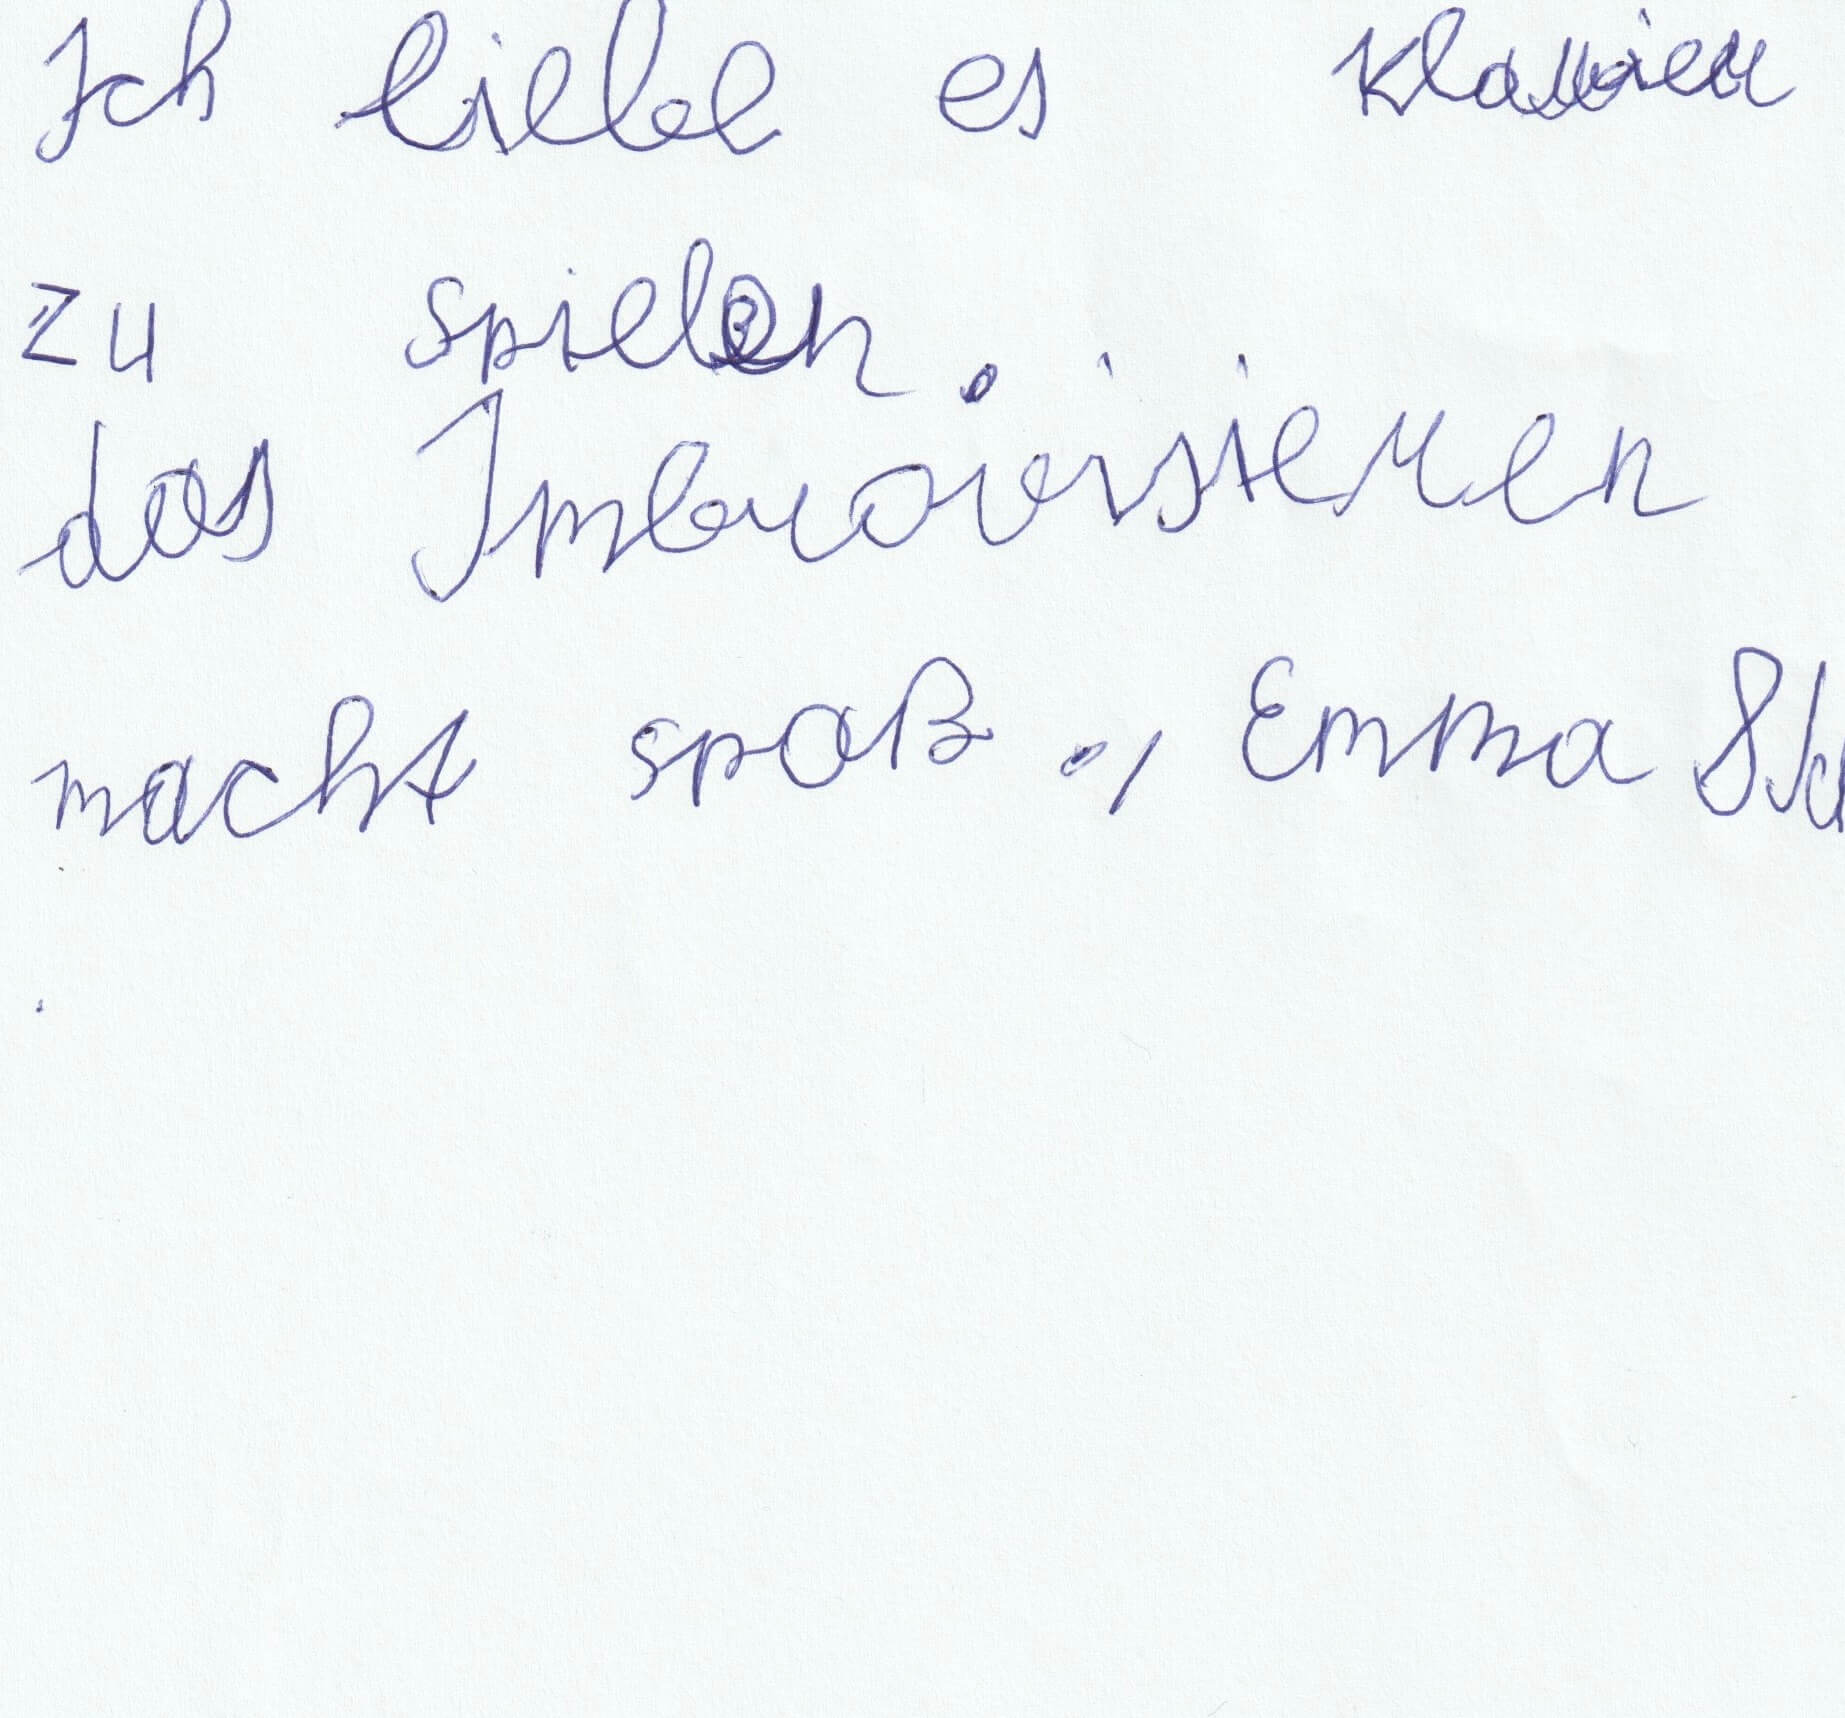 Ich liebe es Klawier
zu spielen.
das Imbrovisieren
macht spaß., Emma